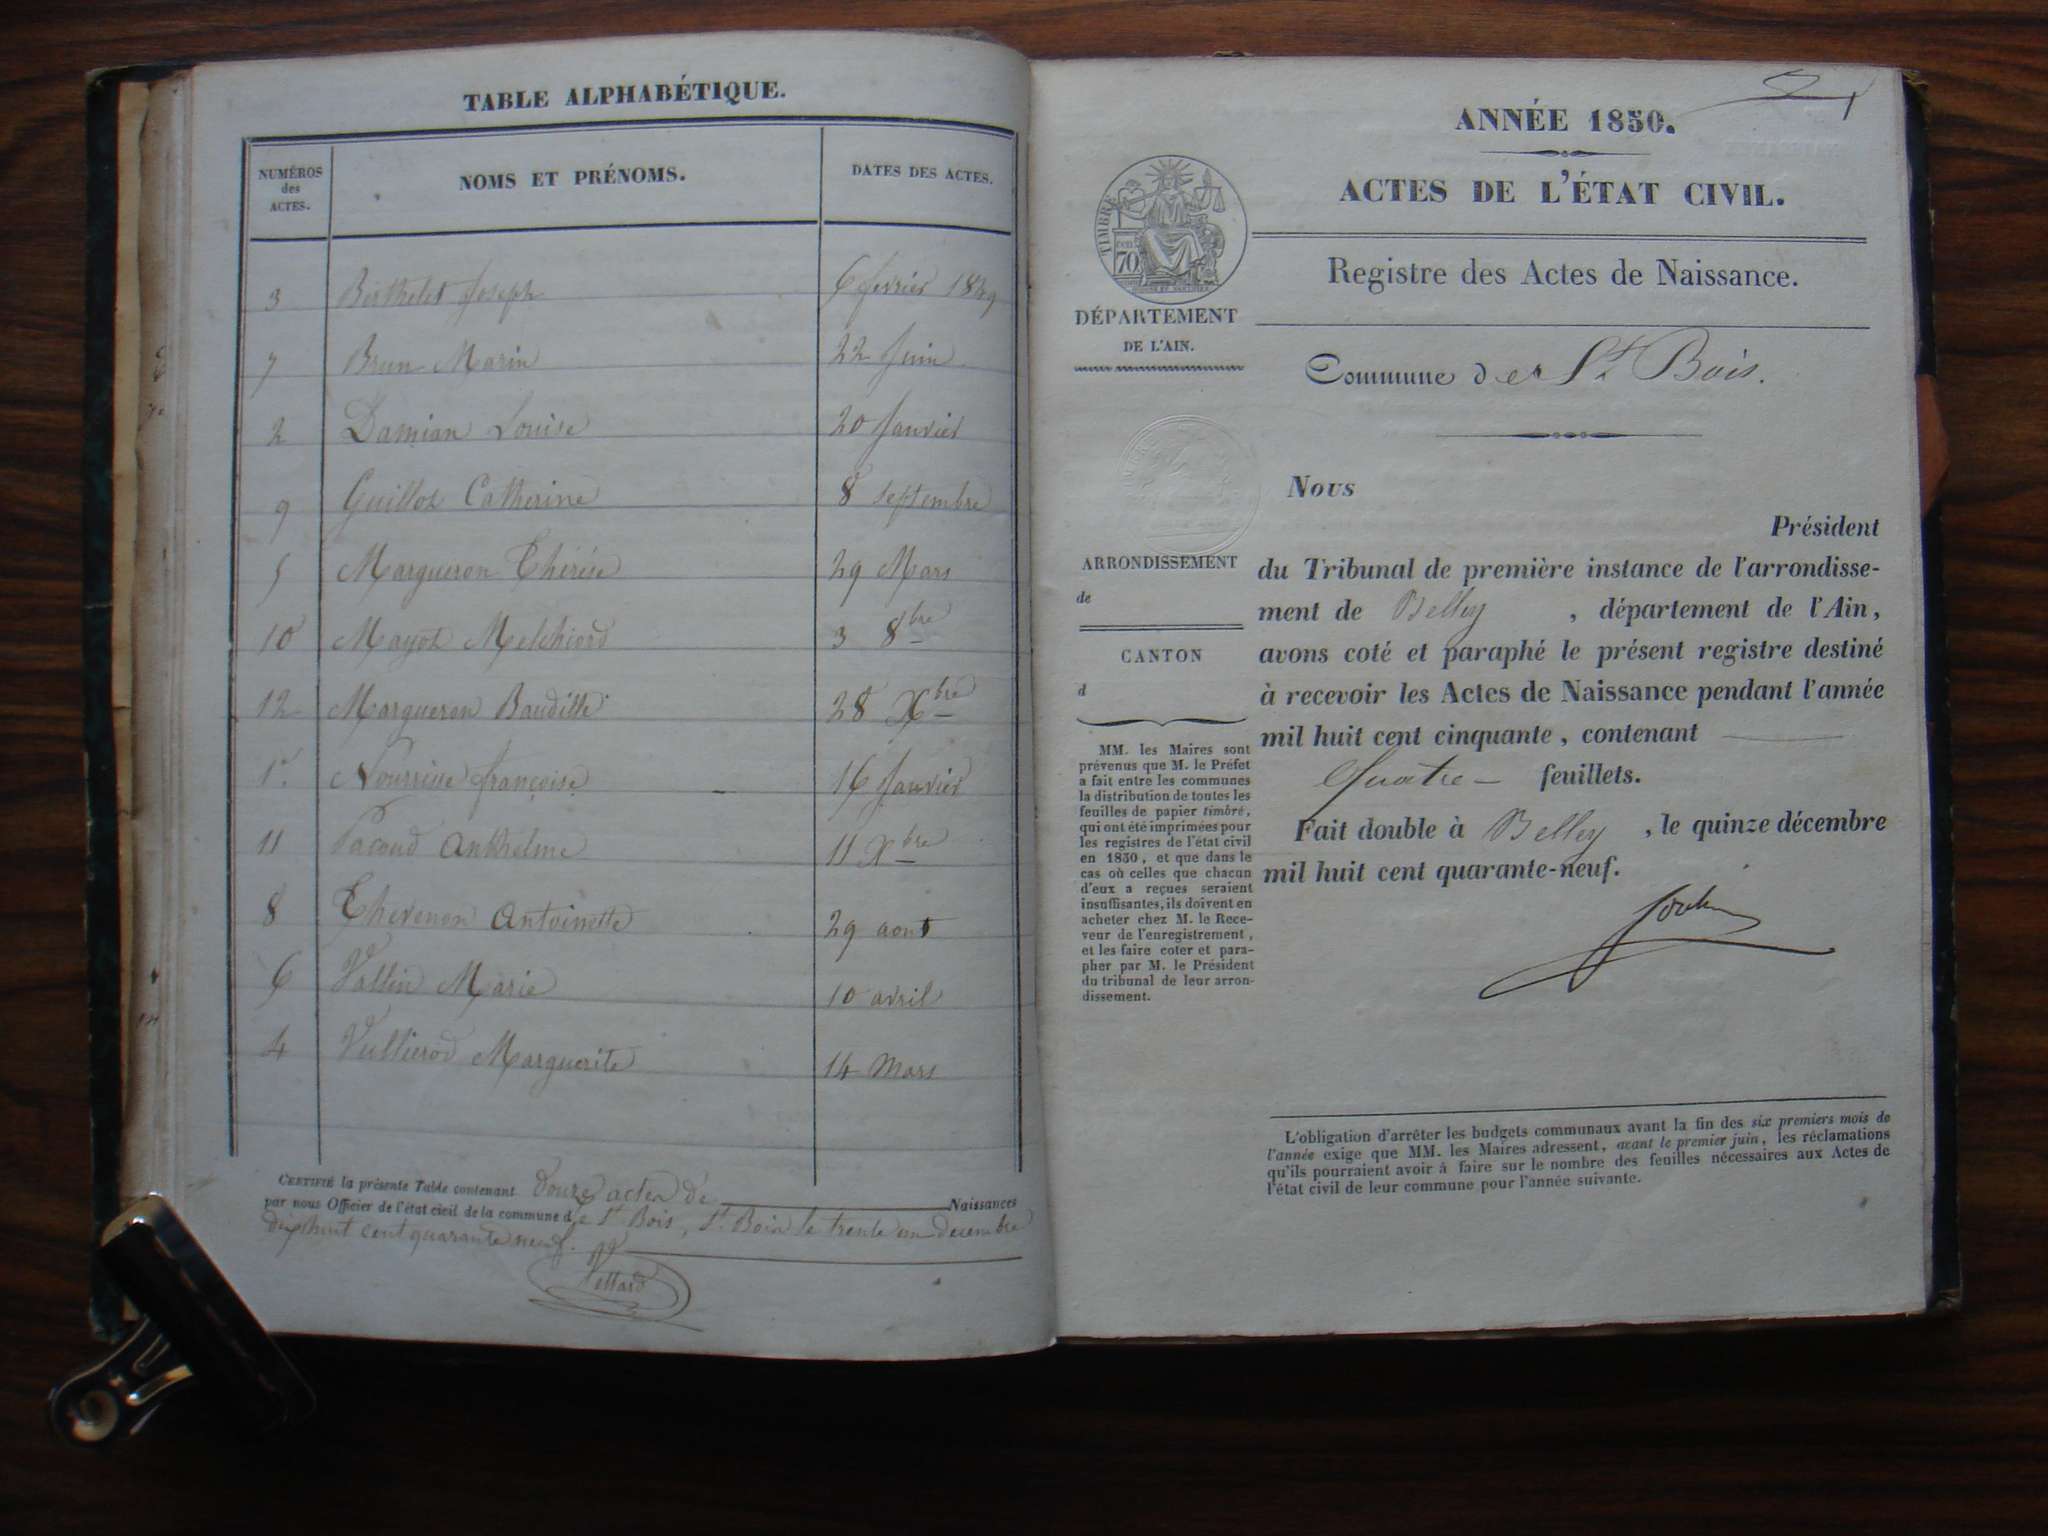 TABLE ALPHABÉTIQUE.
NUMÉROS des ACTES. NOMS ET PRÉNOMS. DATES DES ACTES.
3 Berthelet Joseph 6 fevrier 1849
7 Brun Marin 22 Juin
2 Damian Louise 20 Janvier
9 Guillot Catherine 8 septembre
5 Margueron Thérèse 29 Mars
10 Mayot Melchiord 3 8bre
12 Margueron Baudille 28 Xbre
1er Françoise 16 Janvier
11 Pacoud Anthelme 11 Xbre
8 Thevenon Antoinette 29 aout
6 Vallin Marie 10 avril
4 Vullierod Marguerite 14 Mars
CERTIFIÉ la présente Table contenant douze actes de Naissances
par nous Officier de l'état civil de la commune de St Bois, St Bois le trente un decembre
dix huit cent quarante neuf.
ANNÉE 1850.
ACTES DE L'ÉTAT CIVIL.
Registre des Actes de Naissance.
TIMBRE
70
DÉPARTEMENT
DE L'AIN.
Commune de St Bois.
Nous
Président
du Tribunal de première instance de l'arrondisse-
ment de Belley , département de l'Ain,
avons coté et paraphé le présent registre destiné
à recevoir les Actes de Naissance pendant l'année
mil huit cent cinquante, contenant
Quatre feuillets.
Fait double à Belley , le quinze décembre
mil huit cent quarante-neuf.
ARRONDISSEMENT
de
CANTON
d
MM. les Maires sont
prévenus que M. le Préfet
a fait entre les communes
la distribution de toutes les
feuilles de papier timbré,
qui ont été imprimées pour
les registres de l'état civil
en 1850, et que dans le
cas où celles que chacun
d'eux a reçues seraient
insuffisantes, ils doivent en
acheter chez M. le Rece-
veur de l'enregistrement,
et les faire coter et para-
pher par M. le Président
du tribunal de leur arron-
dissement.
L'obligation d'arrêter les budgets communaux avant la fin des six premiers mois de
l'année exige que MM. les Maires adressent, avant le premier juin, les réclamations
qu'ils pourraient avoir à faire sur le nombre des feuilles nécessaires aux Actes de
l'état civil de leur commune pour l'année suivante.